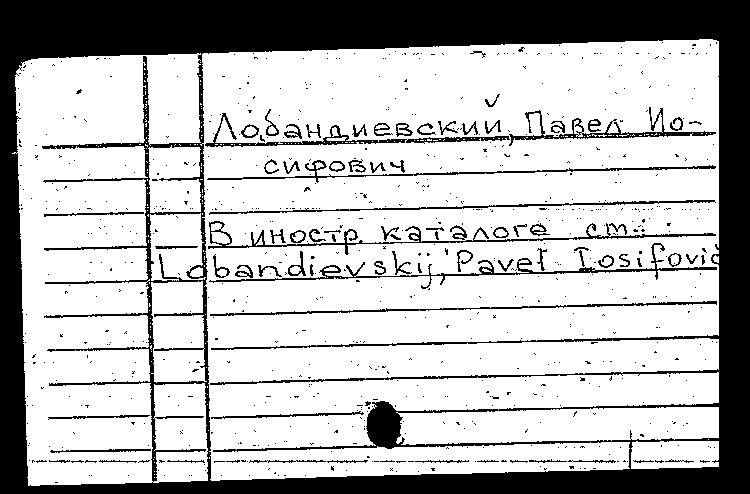 Лобандиевский, Павел Ио-
сифович
В иностр. каталоге см.:
Lobandievskij, Paveł Iosifovič